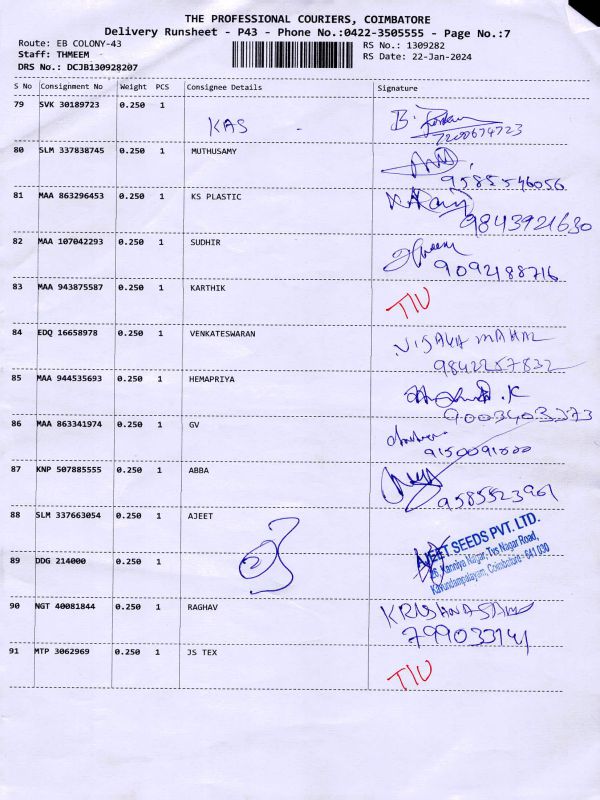 THE PROFESSIONAL COURIERS, COIMBATORE
Delivery Runsheet - P43 - Phone No.:0422-3505555 - Page No.:7
Route: EB COLONY-43
RS No.: 1309282
Staff: THMEEM
RS Date: 22-Jan-2024
DRS No.: DCJB130928207
S No Consignment No Weight PCS Consignee Details Signature
79 SVK 30189723 0.250 1
KAS
7200674723
80 SLM 337838745 0.250 1 MUTHUSAMY
9585546056
81 MAA 863296453 0.250 1 KS PLASTIC
9843921630
82 MAA 107042293 0.250 1 SUDHIR
9092188716
83 MAA 943875587 0.250 1 KARTHIK
TIU
84 EDQ 16658978 0.250 1 VENKATESWARAN
VISAKA MAHAL
9842257832
85 MAA 944535693 0.250 1 HEMAPRIYA
9003403373
86 MAA 863341974 0.250 1 GV
9150091000
87 KNP 507885555 0.250 1 ABBA
9585523961
88 SLM 337663054 0.250 1 AJEET
AJEET SEEDS PVT. LTD.
Kanniya Nagar, Tvs Nagar Road,
Kavundampalayam, Coimbatore - 641 030
89 DDG 214000 0.250 1
90 NGT 40081844 0.250 1 RAGHAV
KRISHNASAMY
799033141
91 MTP 3062969 0.250 1 JS TEX
TIU